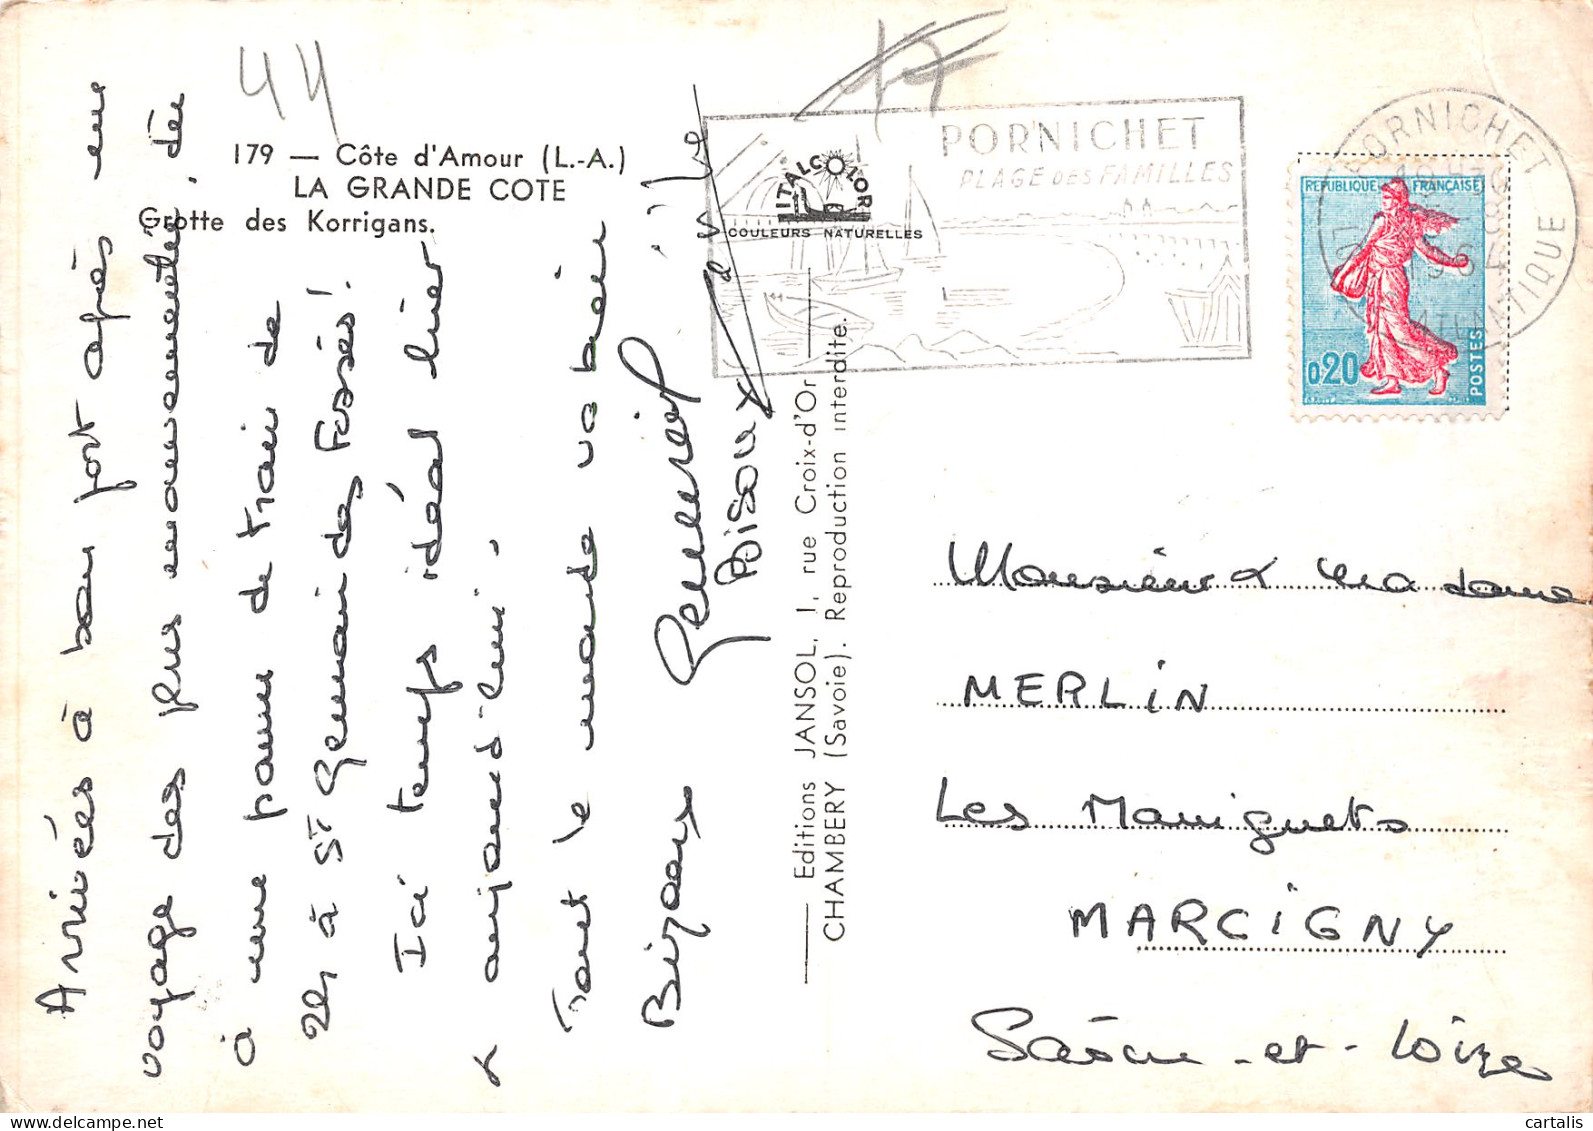 44
179 — Côte d'Amour (L.-A.)
LA GRANDE COTE
Grotte des Korrigans.
ITALCOLOR
COULEURS NATURELLES
PORNICHET
PLAGE DES FAMILLES
PORNICHET
1964
LOIRE ATLANTIQUE
REPUBLIQUE FRANÇAISE
0,20
POSTES
Arrivés à bon port après un
voyage des plus mouvementé, dû
à une panne de train de
2h à St Germain des Fossés!
Ici temps idéal hier
& aujourd'hui.
Tout le monde va bien
Bizous
Bisoux
Editions JANSOL, 1, rue Croix-d'Or
CHAMBERY (Savoie). Reproduction interdite.
Monsieur & Madame
MERLIN
Les
MARCIGNY
Saône-et-Loire
cartalis